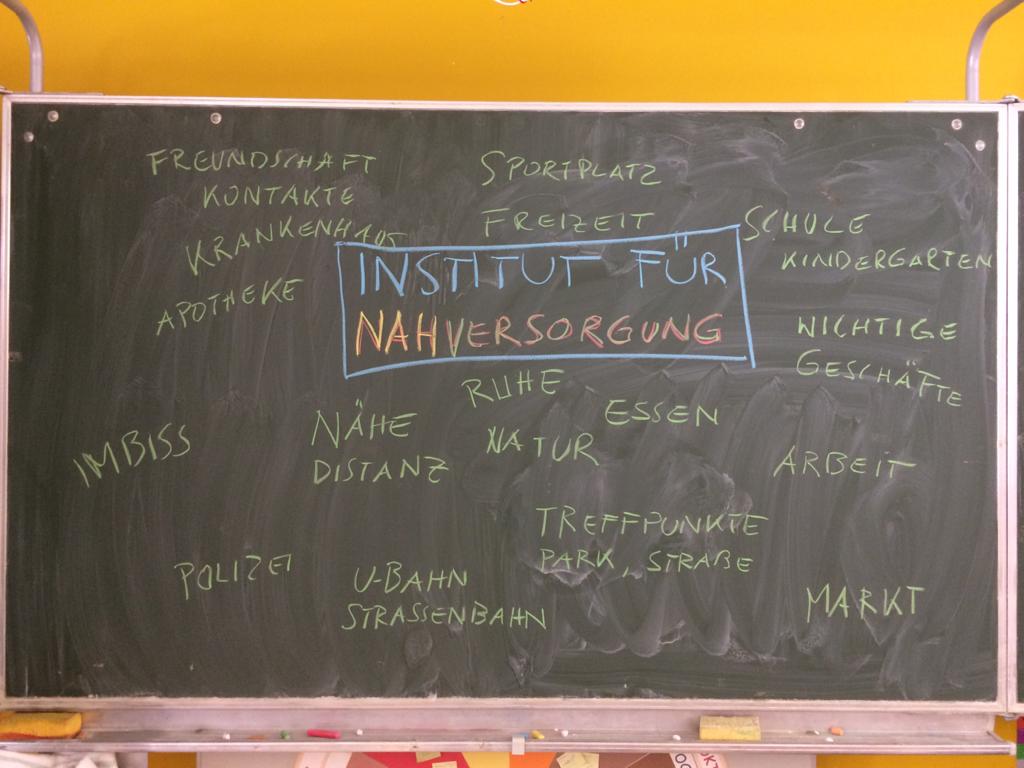 FREUNDSCHAFT
KONTAKTE
KRANKENHAUS
APOTHEKE
SPORTPLATZ
FREIZEIT
SCHULE
KINDERGARTEN
INSTITUT FÜR
NAHVERSORGUNG
WICHTIGE
GESCHÄFTE
RUHE
ESSEN
NÄHE
DISTANZ
NATUR
IMBISS
ARBEIT
TREFFPUNKTE
PARK, STRAßE
POLIZEI
U-BAHN
STRASSENBAHN
MARKT